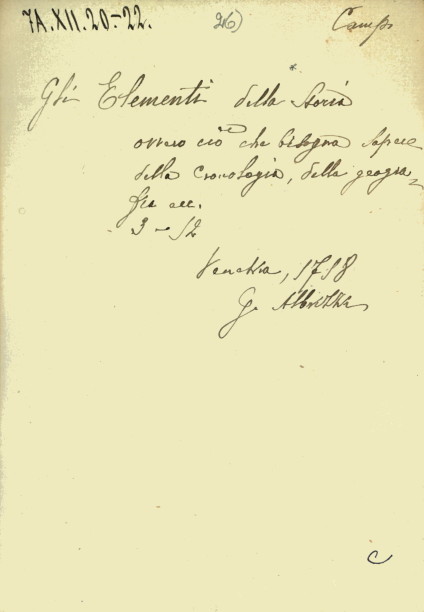 7A.XII.20-22. 26) Camp
Gli Elementi della Storia
ovvero ciò che bisogna sapere
della Cronologia, della geogra-
fia ecc.
3 - 12
Venezia, 1718
G. Albrizzi
C